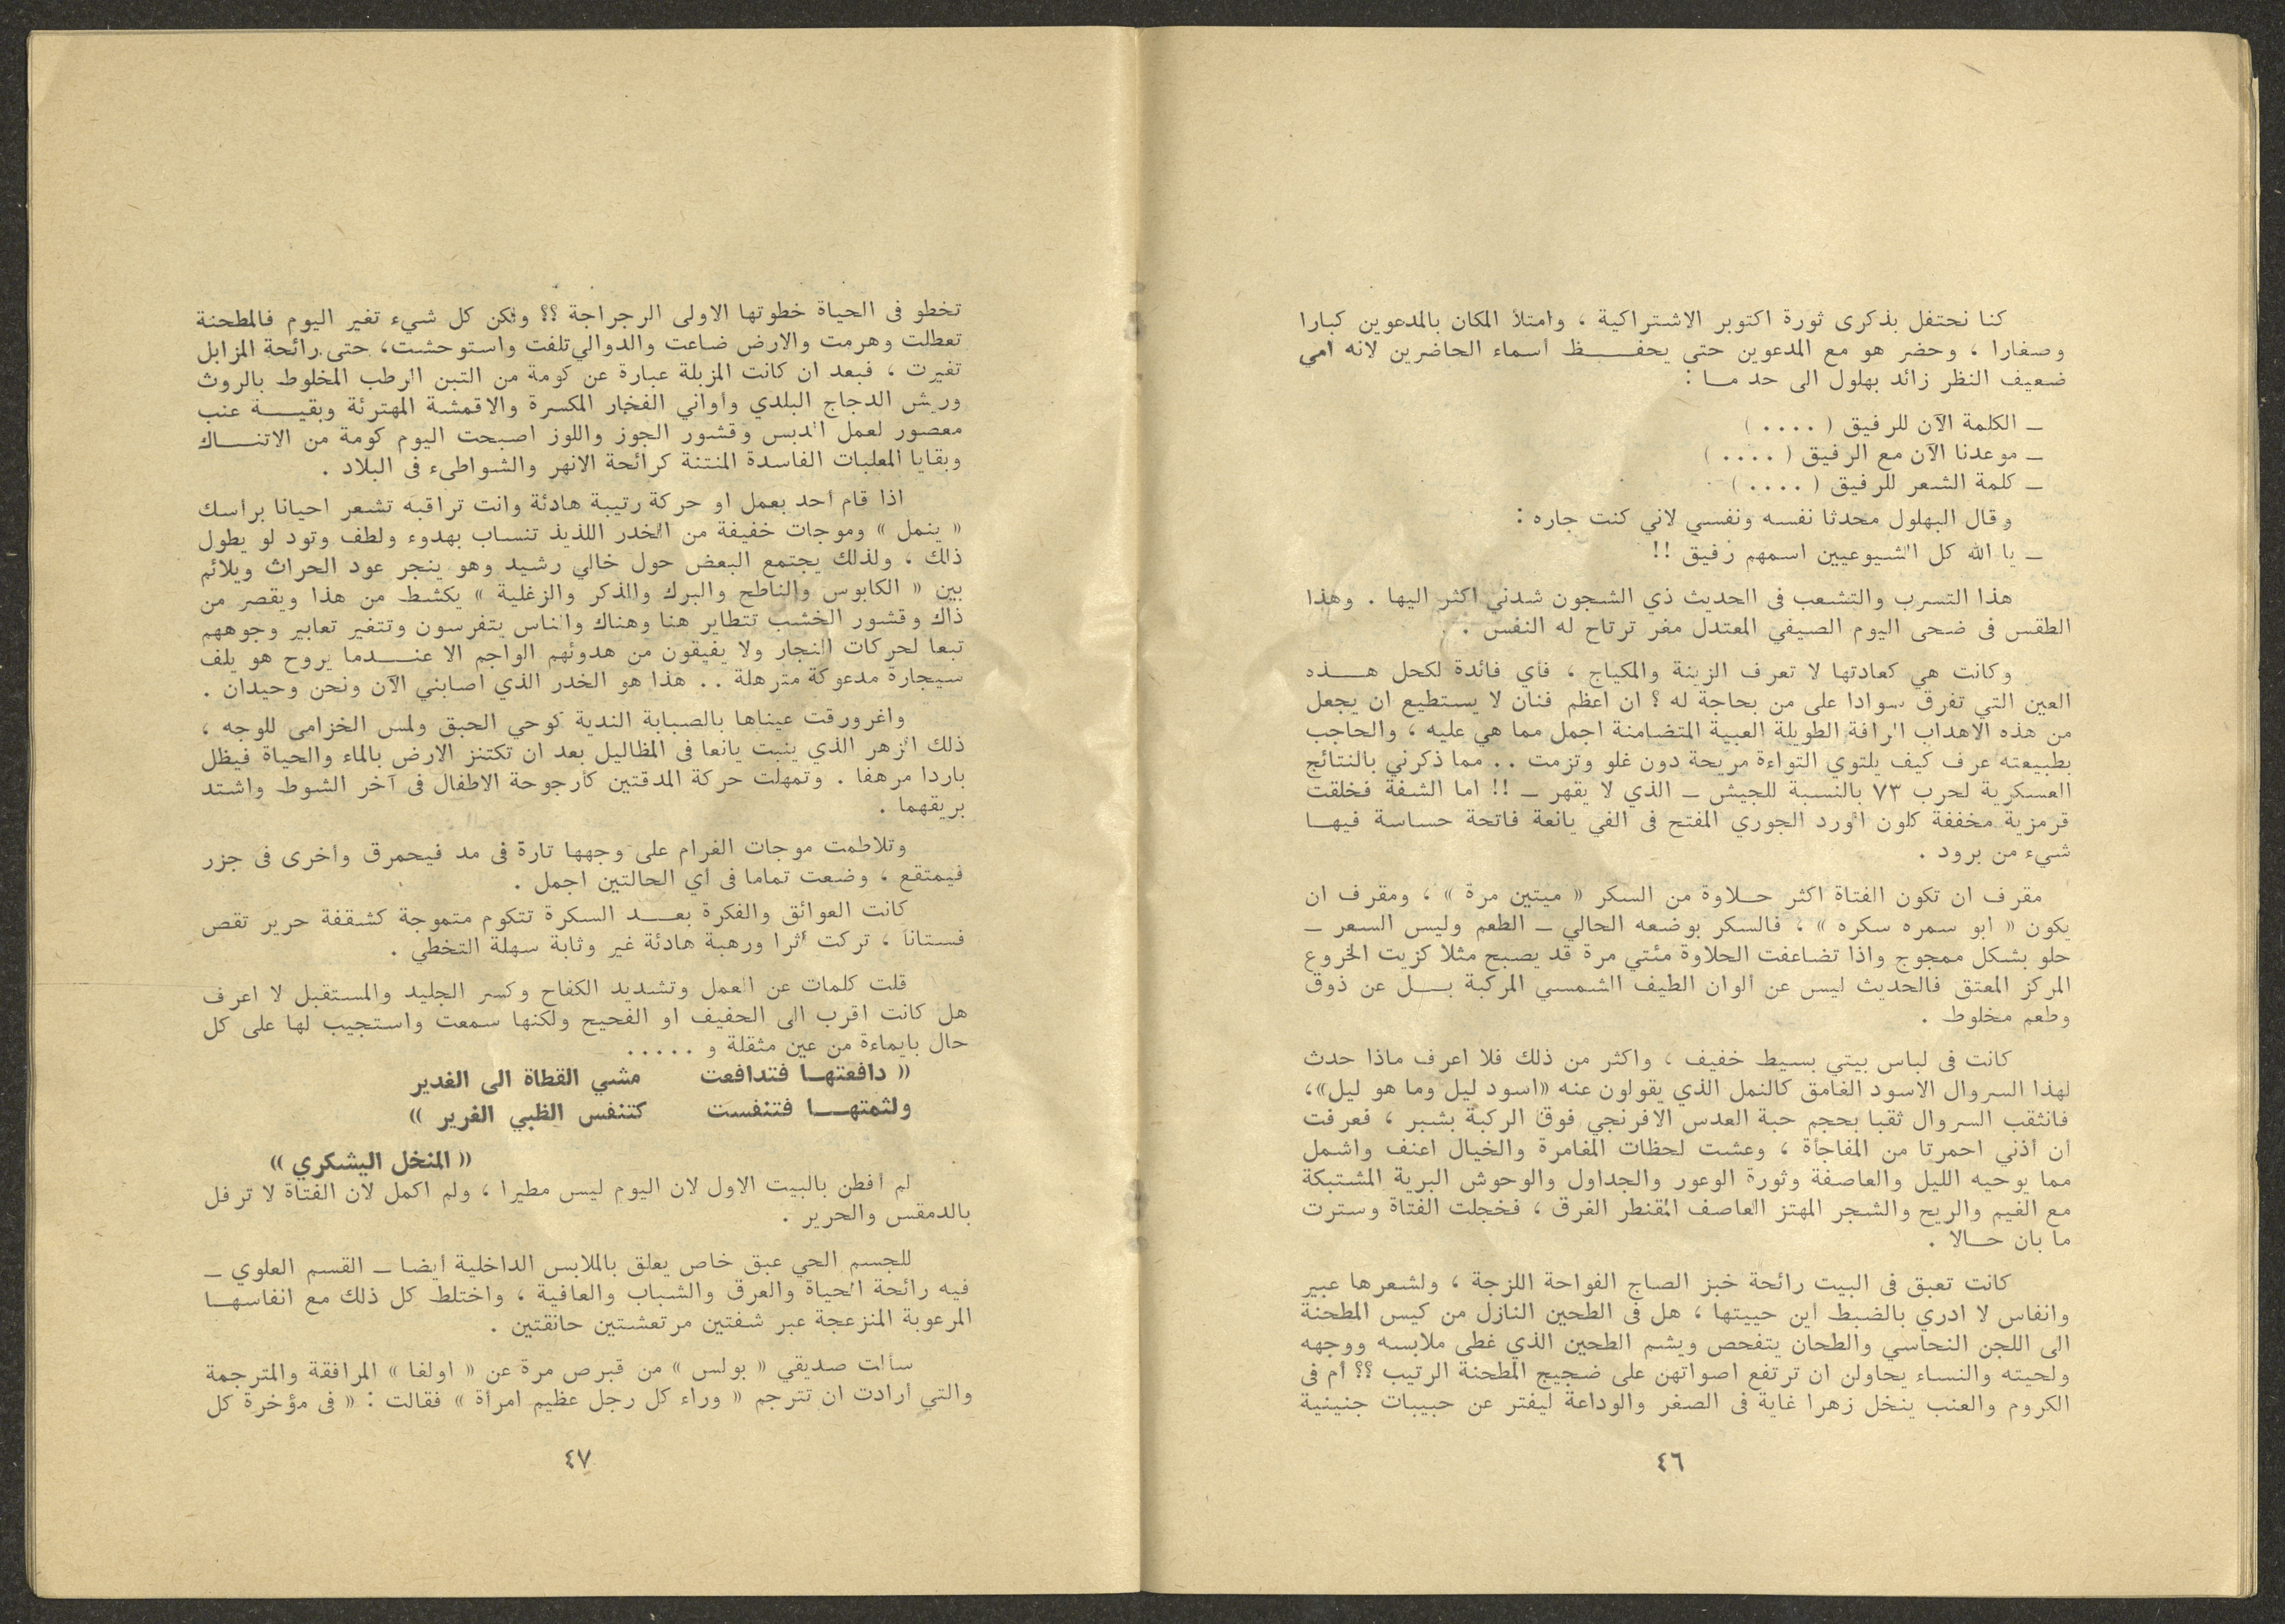 كنا نحتفل بذكرى ثورة اكتوبر الاشتراكية ، وامتلأ المكان بالمدعوين كبارا
وصغارا ، وحضر هو مع المدعوين حتى يحفــــظ أسماء الحاضرين لانه أمي
ضعيف النظر زائد بهلول الى حد مـا :
ـ الكلمة الآن للرفيق ( ٠٠٠٠ )
ـ موعدنا الآن مع الرفيق ( ٠٠٠٠ )
ـ كلمة الشعر للرفيق ( ٠٠٠٠ )
وقال البهلول محدثا نفسه ونفسي لاني كنت جاره :
ـ يا الله كل الشيوعيين اسمهم رفيق !!
هذا التسرب والتشعب فى الحديث ذي الشجون شدني اكثر اليها . وهذا
الطقس فى ضحى اليوم الصيفي المعتدل مغر ترتاح له النفس .
وكانت هي كعادتها لا تعرف الزينة والمكياج ، فأي فائدة لكحل هـــذه
العين التي تفرق سوادا على من بحاجة له ؟ ان اعظم فنان لا يستطيع ان يجعل
من هذه الاهداب الرافة الطويلة العبية المتضامنة اجمل مما هي عليه ، والحاجب
بطبيعته عرف كيف يلتوي التواءة مريحة دون غلو وتزمت .. مما ذكرني بالنتائج
العسكرية لحرب ٧٣ بالنسبة للجيش ـ الذي لا يقهر ـ !! اما الشفة فخلقت
قرمزية مخففة كلون الورد الجوري المفتح فى الفي يانعة فاتحة حساسة فيهـا
شيء من برود .
مقرف ان تكون الفتاة اكثر حـلاوة من السكر « ميتين مرة » ، ومقرف ان
يكون « ابو سمره سكره » ، فالسكر بوضعه الحالي ـ الطعم وليس السعر ـ
حلو بشكل ممجوج واذا تضاعفت الحلاوة مئتي مرة قد يصبح مثلا كزيت الخروع
المركز المعتق فالحديث ليس عن ألوان الطيف الشمسي المركبة بـــل عن ذوق
وطعم مخلوط .
كانت فى لباس بيتي بسيط خفيف ، واكثر من ذلك فلا اعرف ماذا حدث
لهذا السروال الاسود الغامق كالنمل الذي يقولون عنه «اسود ليل وما هو ليل»،
فانثقب السروال ثقبا بحجم حبة العدس الافرنجي فوق الركبة بشبر ، فعرفت
ان أذني احمرتا من المفاجأة ، وعشت لحظات المغامرة والخيال اعنف واشمل
مما يوحيه الليل والعاصفة وثورة الوعور والجداول والوحوش البرية المشتبكة
مع الغيم والريح والشجر المهتز العاصف المقنطر الفرق ، فخجلت الفتاة وسترت
ما بان حـالا .
كانت تعبق فى البيت رائحة خبز الصاج الفواحة اللزجة ، ولشعرها عبير
وانفاس لا ادري بالضبط أين حييتها ، هل فى الطحين النازل من كيس المطحنة
الى اللجن النحاسي والطحان يتفحص ويشم الطحين الذي غطى ملابسه ووجهه
ولحيته والنساء يحاولن ان ترتفع اصواتهن على ضجيج المطحنة الرتيب ؟؟ أم فى
الكروم والعنب ينخل زهرا غاية فى الصغر والوداعة ليفتر عن حبيبات جنينية
٤٦
تخطو فى الحياة خطوتها الاولى الرجراجة ؟؟ ولكن كل شيء تغير اليوم فالمطحنة
تعطلت وهرمت والارض ضاعت والدوالي تلفت واستوحشت، حتى رائحة المزابل
تغيرت ، فبعد ان كانت المزبلة عبارة عن كومة من التبن الرطب المخلوط بالروث
وريش الدجاج البلدي وأواني الفخار المكسرة والاقمشة المهترئة وبقيـــة عنب
معصور لعمل الدبس وقشور الجوز واللوز اصبحت اليوم كومة من الاتنــاك
وبقايا المعلبات الفاسدة المنتنة كرائحة الانهر والشواطىء فى البلاد .
اذا قام أحد بعمل او حركة رتيبة هادئة وانت تراقبه تشعر احيانا برأسك
« ينمل » وموجات خفيفة من الخدر اللذيذ تنساب بهدوء ولطف وتود لو يطول
ذالك ، ولذلك يجتمع البعض حول خالي رشيد وهو ينجر عود الحراث ويلائم
بين « الكابوس والناطح والبرك والذكر والزغلية » يكشط من هذا ويقصر من
ذاك وقشور الخشب تتطاير هنا وهناك والناس يتفرسون وتتغير تعابير وجوههم
تبعا لحركات النجار ولا يفيقون من هدوئهم الواجم الا عنـــدما يروح هو يلف
سيجارة مدعوكة مترهلة .. هذا هو الخدر الذي اصابني الآن ونحن وحيدان .
واغرورقت عيناها بالصبابة الندية كوحي الحبق ولمس الخزامى للوجه ،
ذلك الزهر الذي ينبت يانعا فى المظاليل بعد ان تكتنز الارض بالماء والحياة فيظل
باردا مرهفا . وتمهلت حركة المدقتين كأرجوحة الاطفال فى آخر الشوط واشتد
بريقهما .
وتلاطمت موجات الغرام على وجهها تارة فى مد فيحمرق وأخرى فى جزر
فيمتقع ، وضعت تماما فى أي الحالتين اجمل .
كانت العوائق والفكرة بعـــد السكرة تتكوم متموجة كشقفة حرير تقص
فستانا ، تركت أثرا ورهبة هادئة غير وثابة سهلة التخطي .
قلت كلمات عن العمل وتشديد الكفاح وكسر الجليد والمستقبل لا اعرف
هل كانت اقرب الى الحفيف او الفحيح ولكنها سمعت واستجيب لها على كل
حال بايماءة من عين مثقلة و .....
« دافعتهـا فتدافعت    مشي القطاة الى الغدير
ولثمتهـــا فتنفست    كتنفس الظبي الغرير »
« المنخل اليشكري »
لم أفطن بالبيت الاول لان اليوم ليس مطيرا ، ولم اكمل لان الفتاة لا ترفل
بالدمقس والحرير .
للجسم الحي عبق خاص يعلق بالملابس الداخلية أيضا ـ القسم العلوي ـ
فيه رائحة الحياة والعرق والشباب والعافية ، واختلط كل ذلك مع انفاسهـا
المرعوبة المنزعجة عبر شفتين مرتعشتين حانقتين .
سألت صديقي « بولس » من قبرص مرة عن « اولغا » المرافقة والمترجمة
والتي أرادت ان تترجم « وراء كل رجل عظيم امرأة » فقالت : « فى مؤخرة كل
٤٧